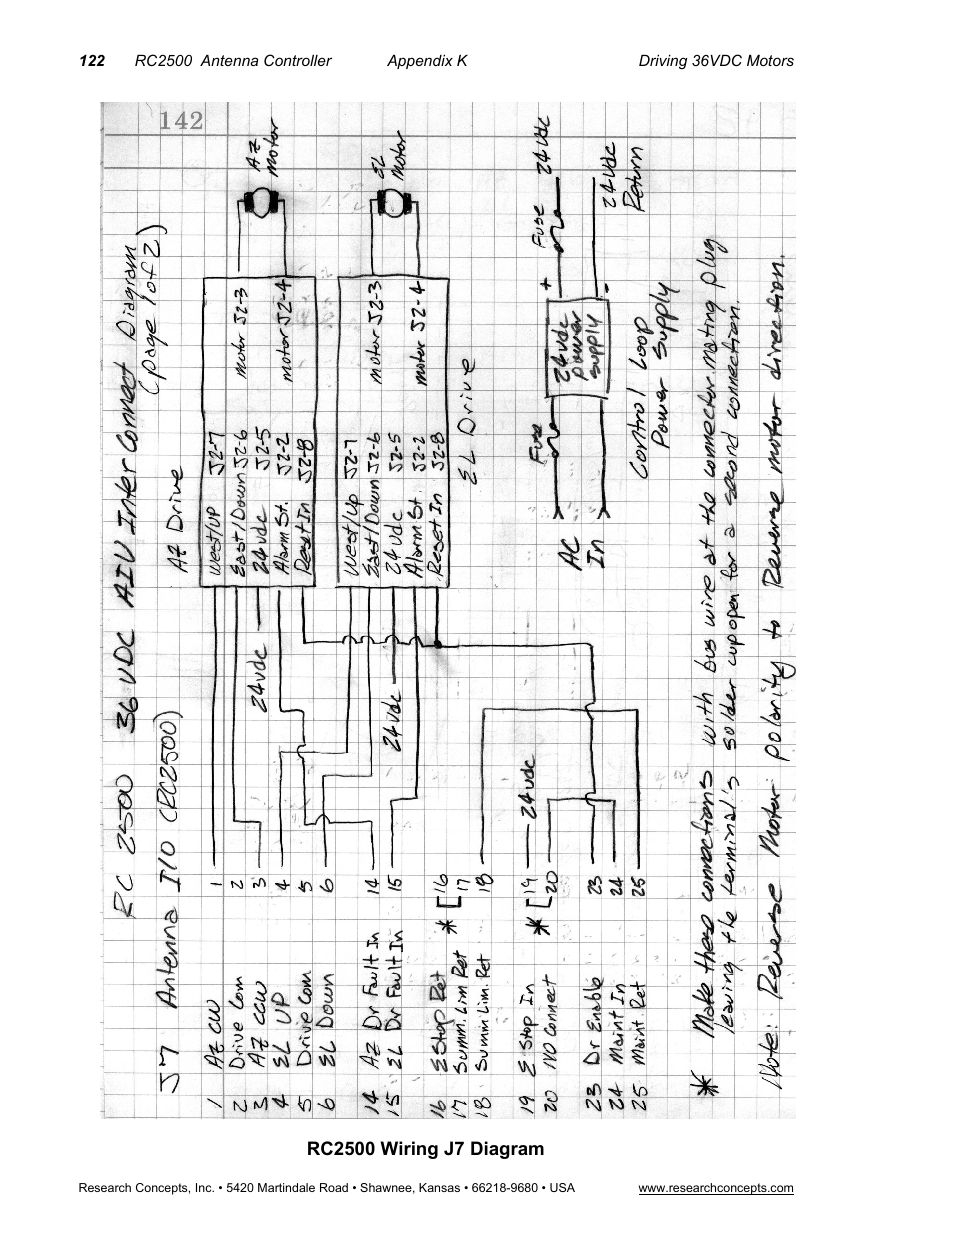 122 RC2500 Antenna Controller Appendix K Driving 36VDC Motors
142
RC 2500 36 VDC AIU Inter Connect Diagram
(page 1 of 2)
J7 Antenna I/O (RC2500)
AZ Drive
1 AZ CW 1
2 Drive Com 2
3 AZ CCW 3
4 EL UP 4
5 Drive Com 5
6 EL Down 6
14 AZ Dr Fault In 14
15 EL Dr Fault In 15
16 E Stop Ret * [ 16
17 Summ. Lim Ret 17
18 Summ Lim. Ret 18
19 E Stop In * [ 19 24vdc
20 NO Connect 20
23 Dr Enable 23
24 Maint In 24
25 Maint Ret 25
24vdc
24vdc
West/UP J2-7
East/Down J2-6
24vdc J2-5
Alarm St. J2-2
Reset In J2-8
motor J2-3
motor J2-4
AZ
Motor
West/Up J2-7
East/Down J2-6
24vdc J2-5
Alarm St. J2-2
Reset In J2-8
motor J2-3
motor J2-4
EL
Motor
EL Drive
AC
In
Fuse
24vdc
power
supply
+
-
Fuse
24Vdc
24Vdc
Return
Control Loop
Power Supply
* Make these connections with bus wire at the connector mating plug
leaving the terminal's solder cup open for a second connection.
Note: Reverse Motor polarity to Reverse motor direction.
RC2500 Wiring J7 Diagram
Research Concepts, Inc. • 5420 Martindale Road • Shawnee, Kansas • 66218-9680 • USA www.researchconcepts.com